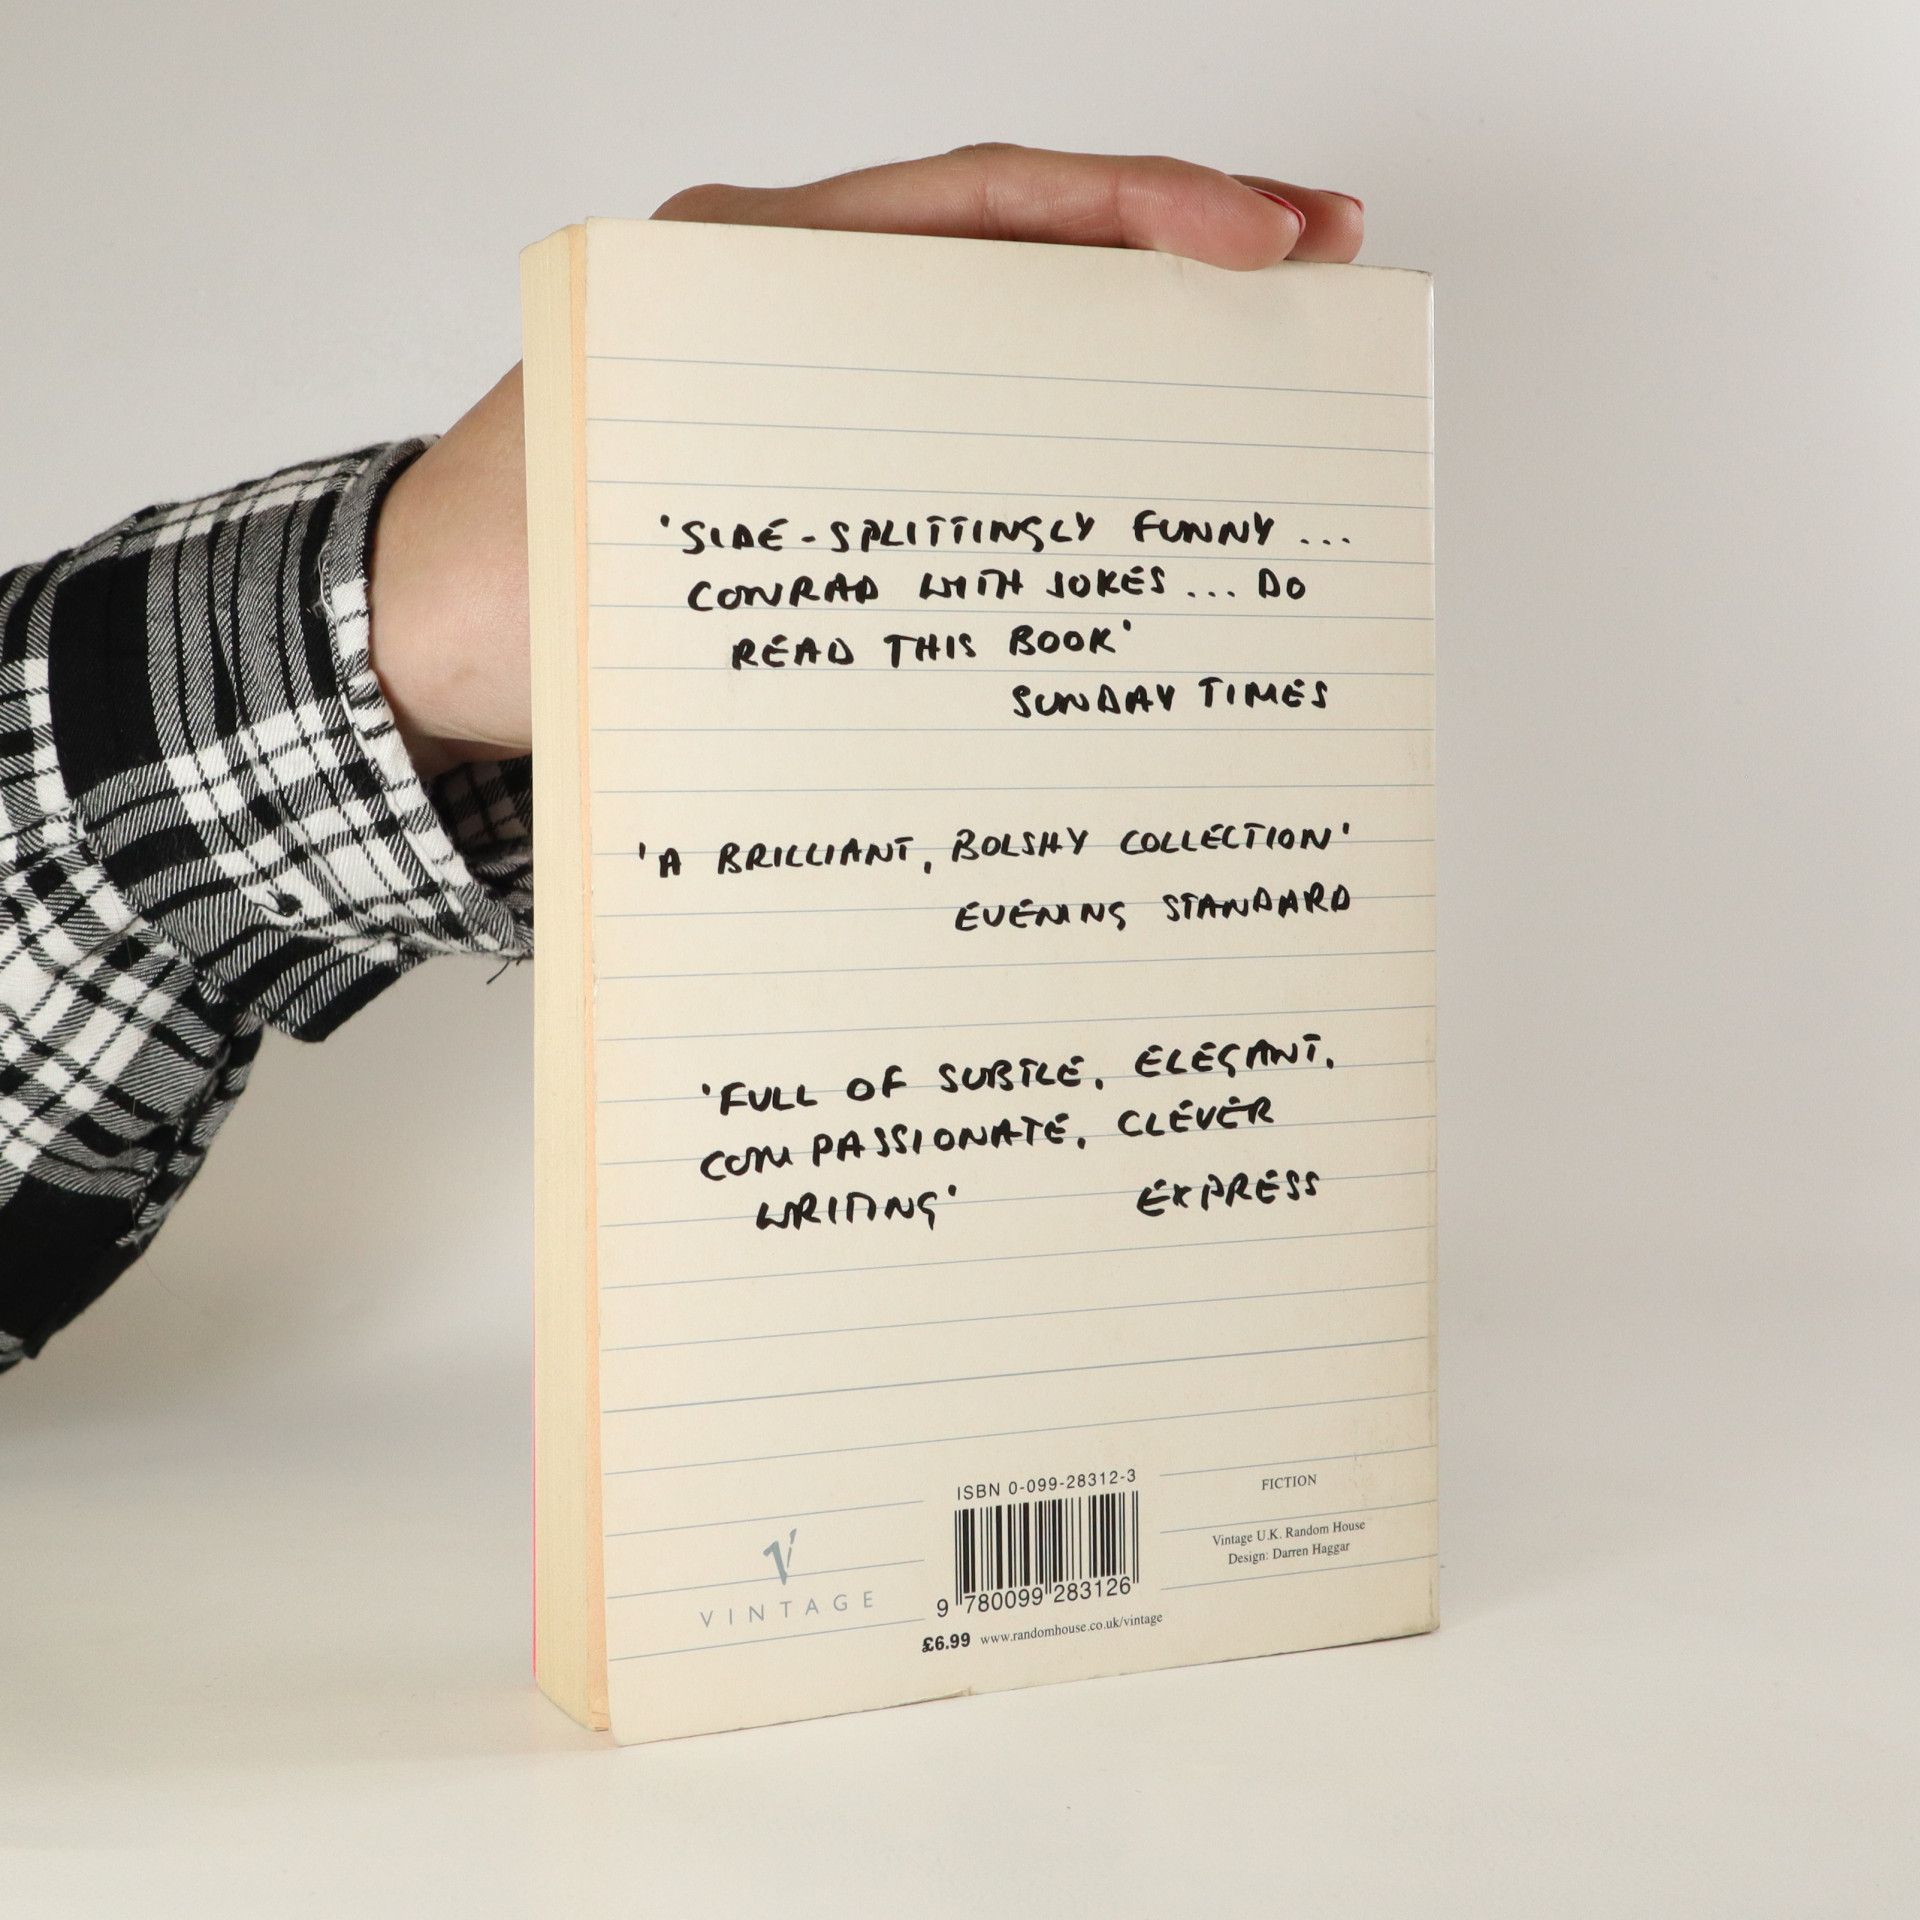 'SIDE-SPLITTINGLY FUNNY...
CONRAD WITH JOKES... DO
READ THIS BOOK'
SUNDAY TIMES
'A BRILLIANT, BOLSHY COLLECTION'
EVENING STANDARD
'FULL OF SUBTLE, ELEGANT,
COMPASSIONATE, CLEVER
WRITING' EXPRESS
ISBN 0-099-28312-3
9 780099 283126
£6.99 www.randomhouse.co.uk/vintage
V
VINTAGE
FICTION
Vintage U.K. Random House
Design: Darren Haggar